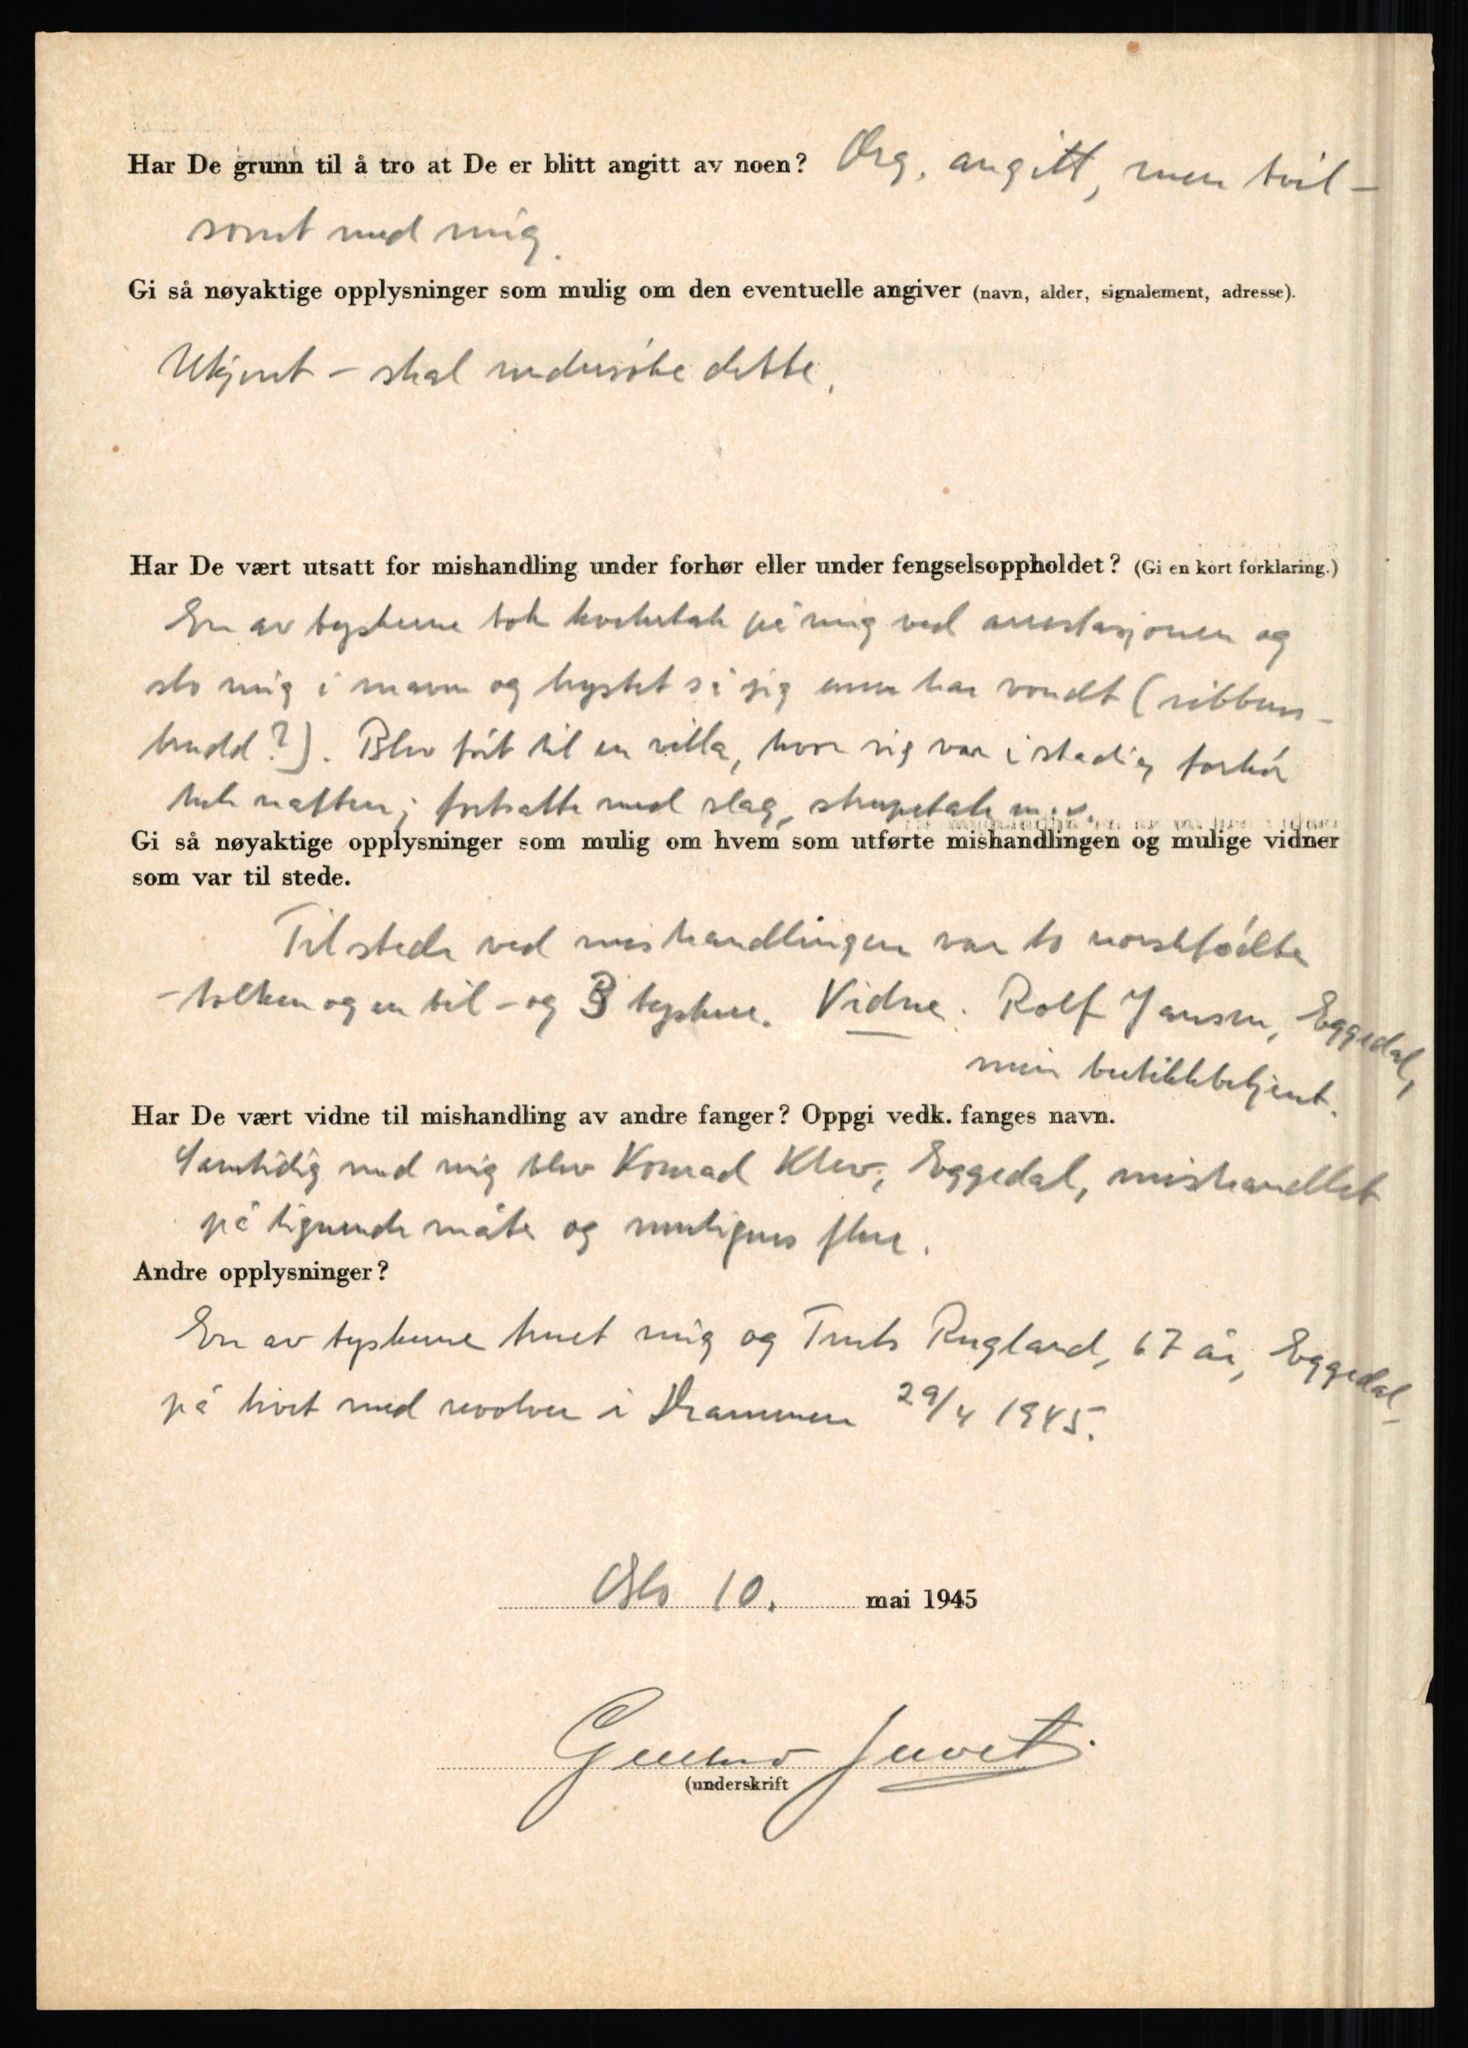 Har De grunn til å tro at De er blitt angitt av noen? Org. angitt, men tvil-
somt med mig.
Gi så nøyaktige opplysninger som mulig om den eventuelle angiver (navn, alder, signalement, adresse).
Ukjent – skal undersöke dette.
Har De vært utsatt for mishandling under forhør eller under fengselsoppholdet? (Gi en kort forklaring.)
En av tyskerne tok kvelertak på mig ved arrestasjonen og
slo mig i maven og brystet så jeg ennu har vondt (ribbens-
brudd?). Blev fört til en villa, hvor jeg var i stadig forhör
hele natten; fortsatte med slag, strupetak m.v.
Gi så nøyaktige opplysninger som mulig om hvem som utførte mishandlingen og mulige vidner
som var til stede.
Til stede ved mishandlingen var to norskfödte
– tolken og en til – og 3 tyskere. Vidne: Rolf Jansen, Eggedal,
min butikkbetjent.
Har De vært vidne til mishandling av andre fanger? Oppgi vedk. fanges navn.
Samtidig med mig blev Konrad Klev, Eggedal, mishandlet
på lignende måte og muligens flere.
Andre opplysninger?
En av tyskerne truet mig og Truls Rugland, 67 år, Eggedal –
på livet med revolver i Drammen 29/4 1945.
Oslo 10. mai 1945
Gustav Juvet.
(underskrift